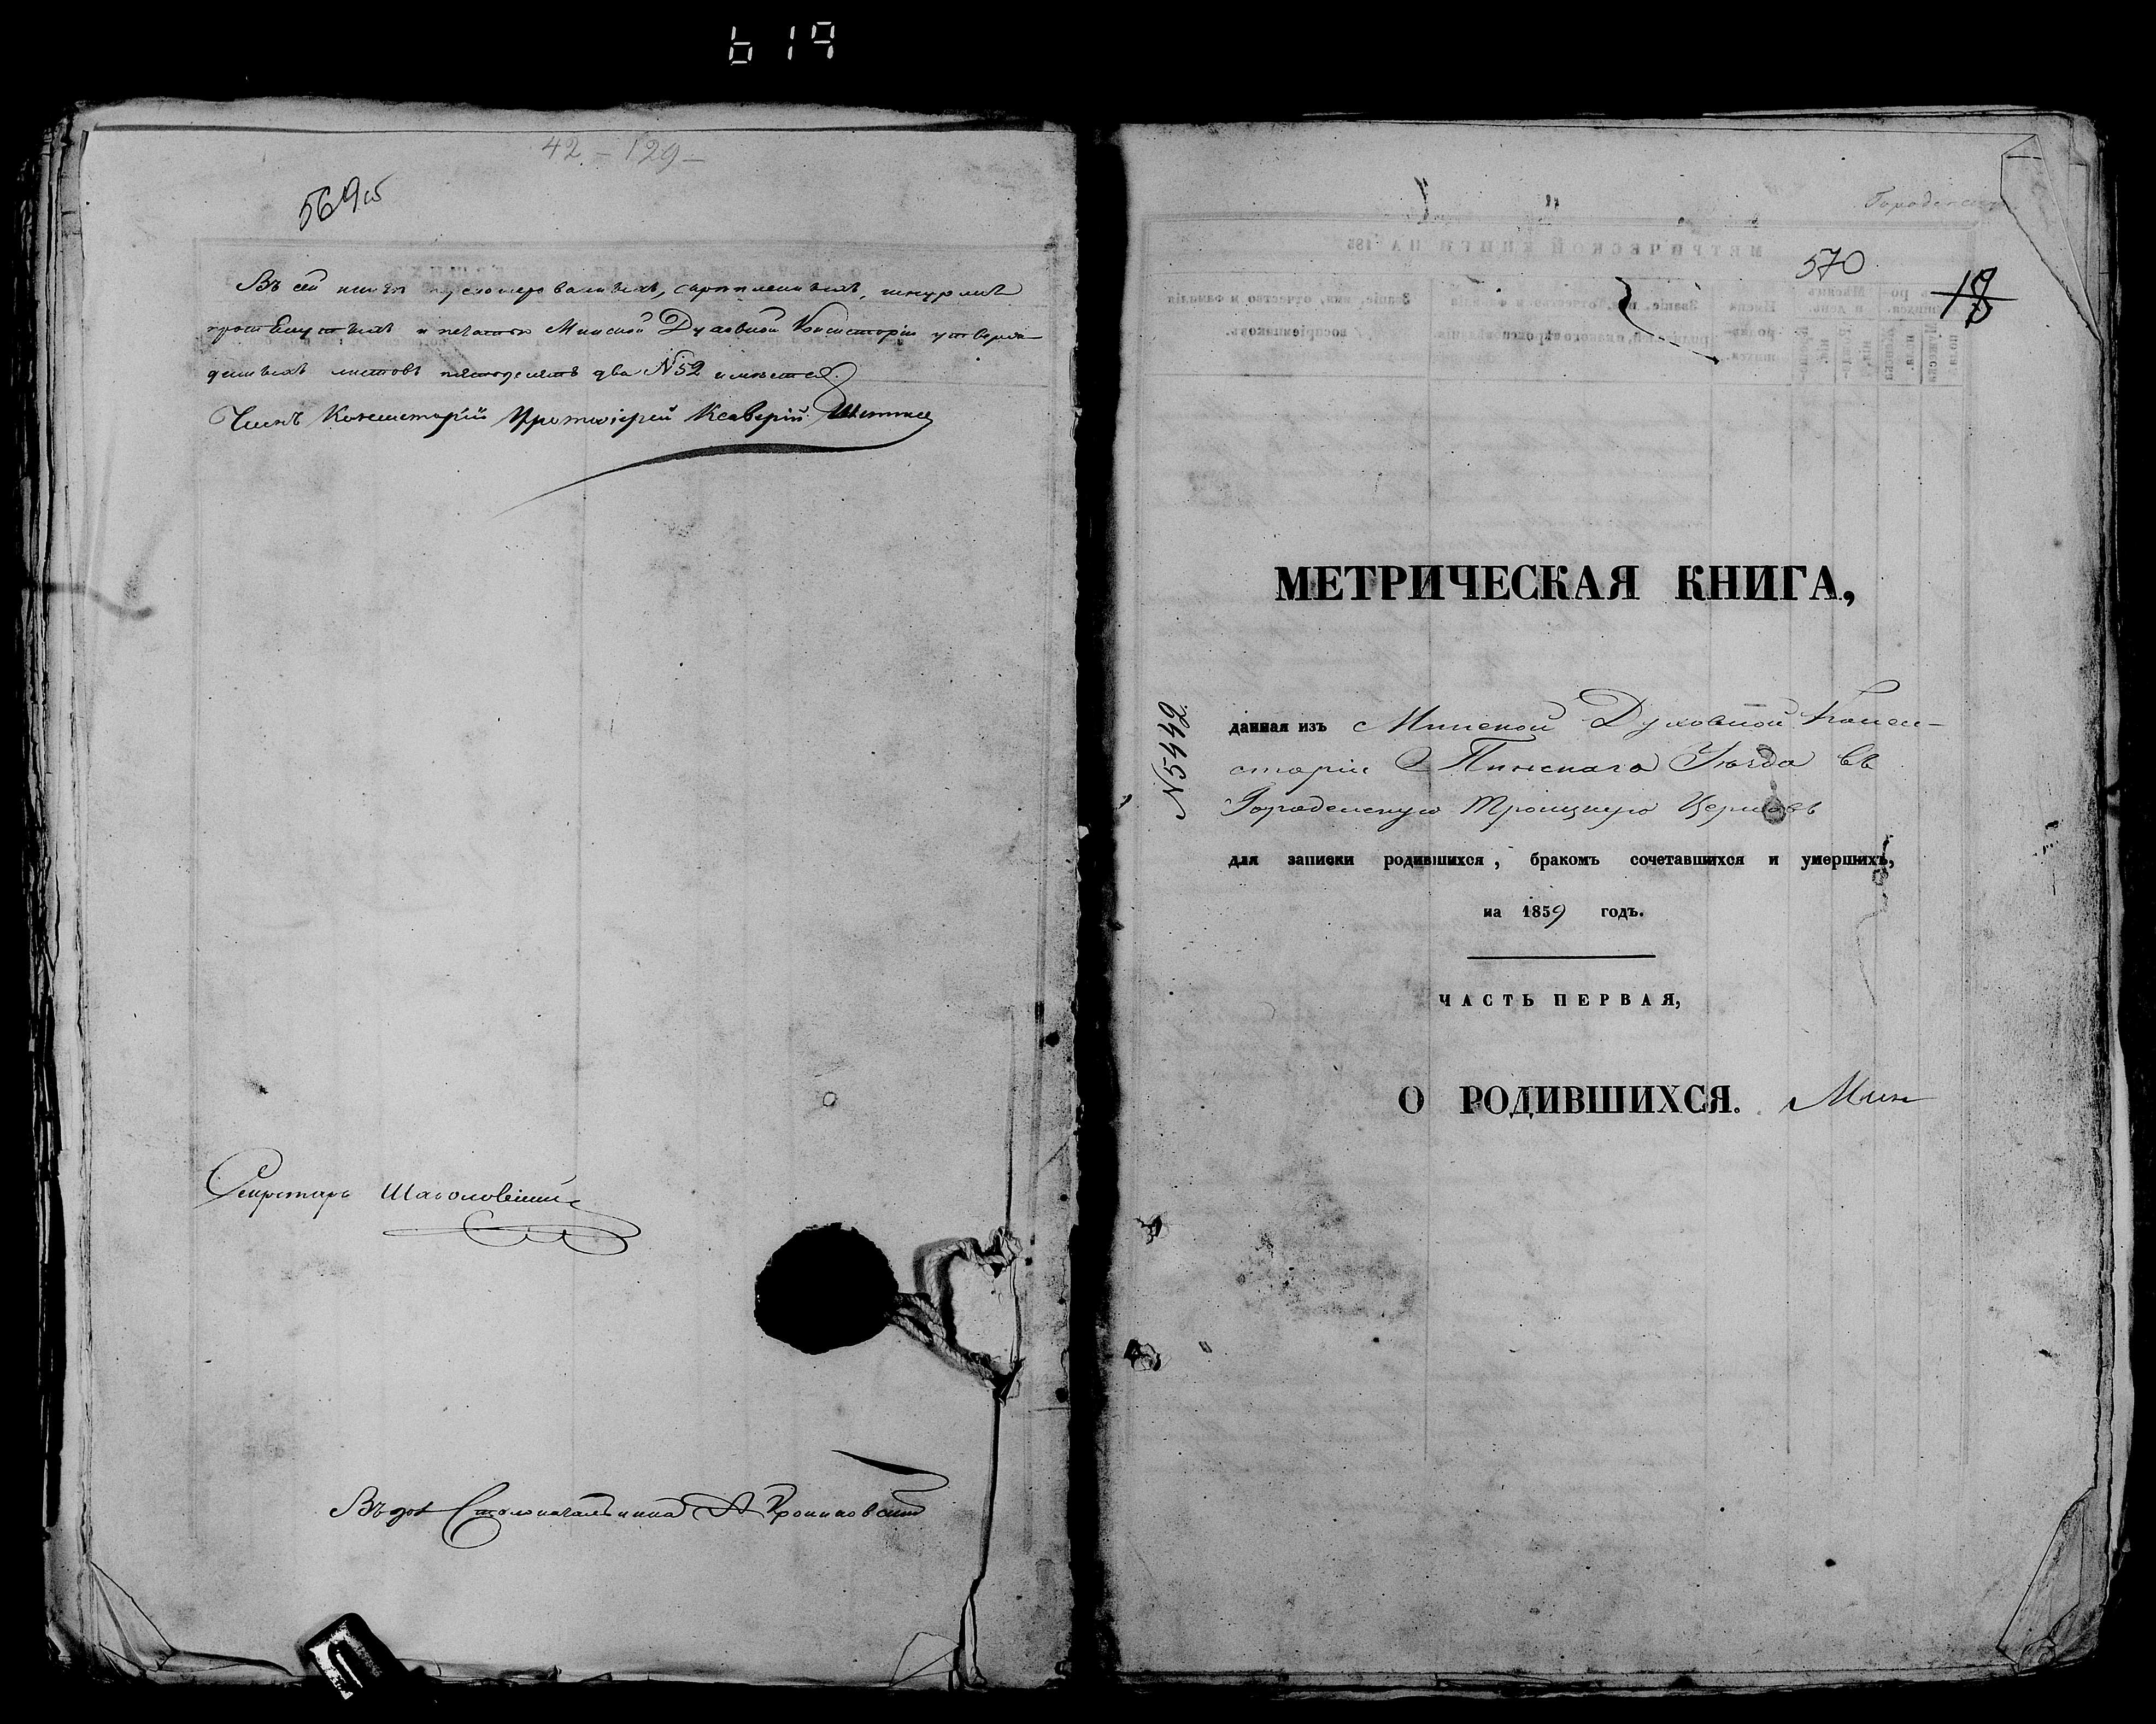 619
42 – 129 –
569об
Въ сей книгѣ пронумерованныхъ, скрепленныхъ, шнуромъ
прошнурованныхъ и печатью Минской Духовной Консисторіи утверж-
денныхъ листовъ пятьдесятъ два N52 имѣется.
Членъ Консисторіи Протоіерей Ксаверій
Секретарь
Въ дол. Столоначальника
570
18
МЕТРИЧЕСКАЯ КНИГА,
N5442.
данная изъ Минской Духовной Конси-
сторіи Пинскаго Уѣзда въ
Городенскую Троицкую Церковь
для записки родившихся, бракомъ сочетавшихся и умершихъ,
на 1859 годъ.
ЧАСТЬ ПЕРВАЯ,
О РОДИВШИХСЯ.